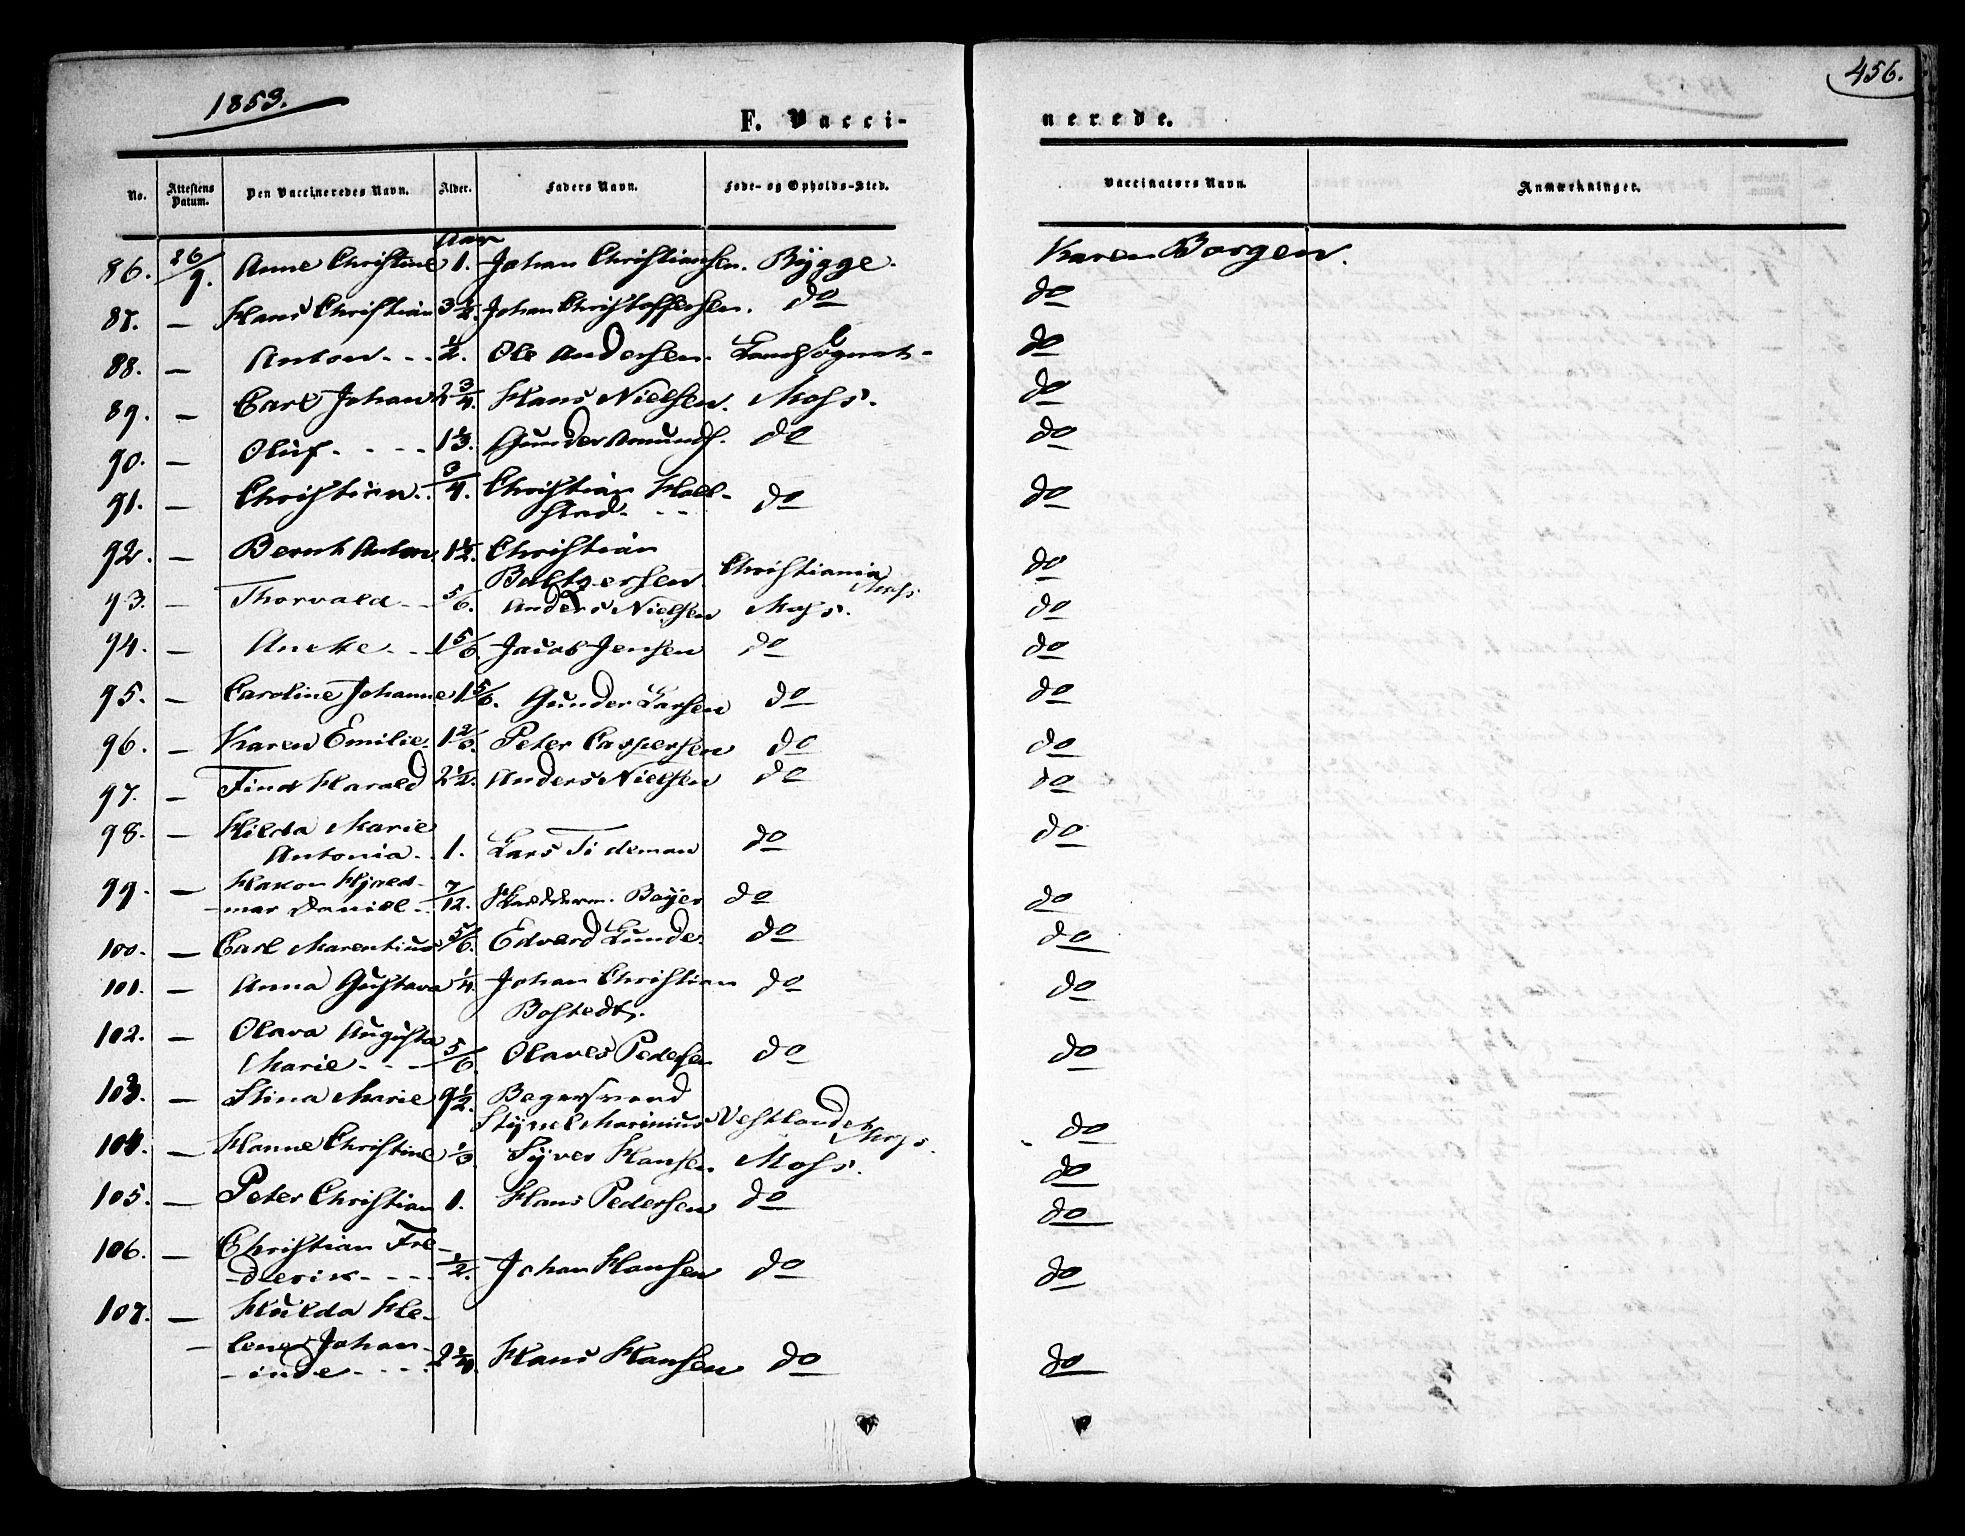 456.
1853.
F. Vaccinerede.
No. Attestens Datum. Den Vaccineredes Navn. Alder. Faders Navn. Føde- og Opholds-Sted. Vaccinators Navn. Anmærkninger.
Aar
86. 26/9. Anne Christine 1. Johan Christiansen. Rygge. Karen Borgen.
87. — Hans Christian 3½. Johan Christoffersen. do do
88. — Anton - - - ½. Ole Andersen. Landsognet - do
89. — Carl Johan 2¾. Hans Nielsen. Moss. do
90. — Oluf - - - - 1⅓. Gunder Amunds. do do
91. — Christian - - ¾. Christian Holl-
stad - - - do do
92. — Bernh Anton 1½. Christian
Baltzersen. Christiania / Moss do
93. — Thorvald - - 5/6. Anders Nielsen Moss. do
94. — - - 1 5/6. Jacob Jensen do do
95. — Caroline Johanne 1 5/6. Gunder Larsen do do
96. — Karen Emilie. Peter Caspersen do do
97. — Find Harald 2½. Anders Nielsen do do
98. — Hilda Marie
Antonia - - 1. Lars Tideman do do
99. — Hakon Hjald-
-mar Daniel - - 7/12. Beyer do do
100. — Carl Marentius 5/6. Edvard Lunde. do do
101. — Anna Gustava ¼. Johan Christian
Bostedt. do do
102. — Olava Augusta
Marie - - - - 5/6. Olaves Pedersen do do
103. — Stina Marie 9½.
Marinius Vestlandet / Moss. do
104. — Hanne Christine ⅓. Syver Hansen Moss. do
105. — Peter Christian 1. Hans Pedersen do do
106. — Christian Fre-
-derik - - - - ½. Johan Hansen do do
107. — Hulda He-
- lene Johan-
- inde - - - - 2¼. Hans Hansen do do